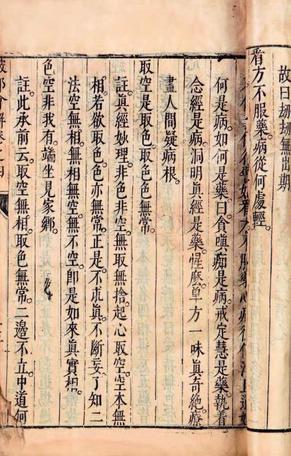 故曰劫劫無出期
者方不服藥。病從何處輕。
何是病。如何是藥。曰貪嗔痴是病。戒定慧是藥。執着
念經是病。洞明眞經是藥。惺麽草方一味眞奇絶療
盡人間疑病根。
取空是取色。取色色無常。
註眞經妙理。非色非空。無取無捨。起心取空。空本無
相。若欲取色。色亦無常。正是不求眞。不斷妄。了知二
法空無相。無相無空無不空。即是如來眞實相。
色空非我有。端坐見家鄉。
註此承前云。取空無相。取色無常。二邊不立。中道何